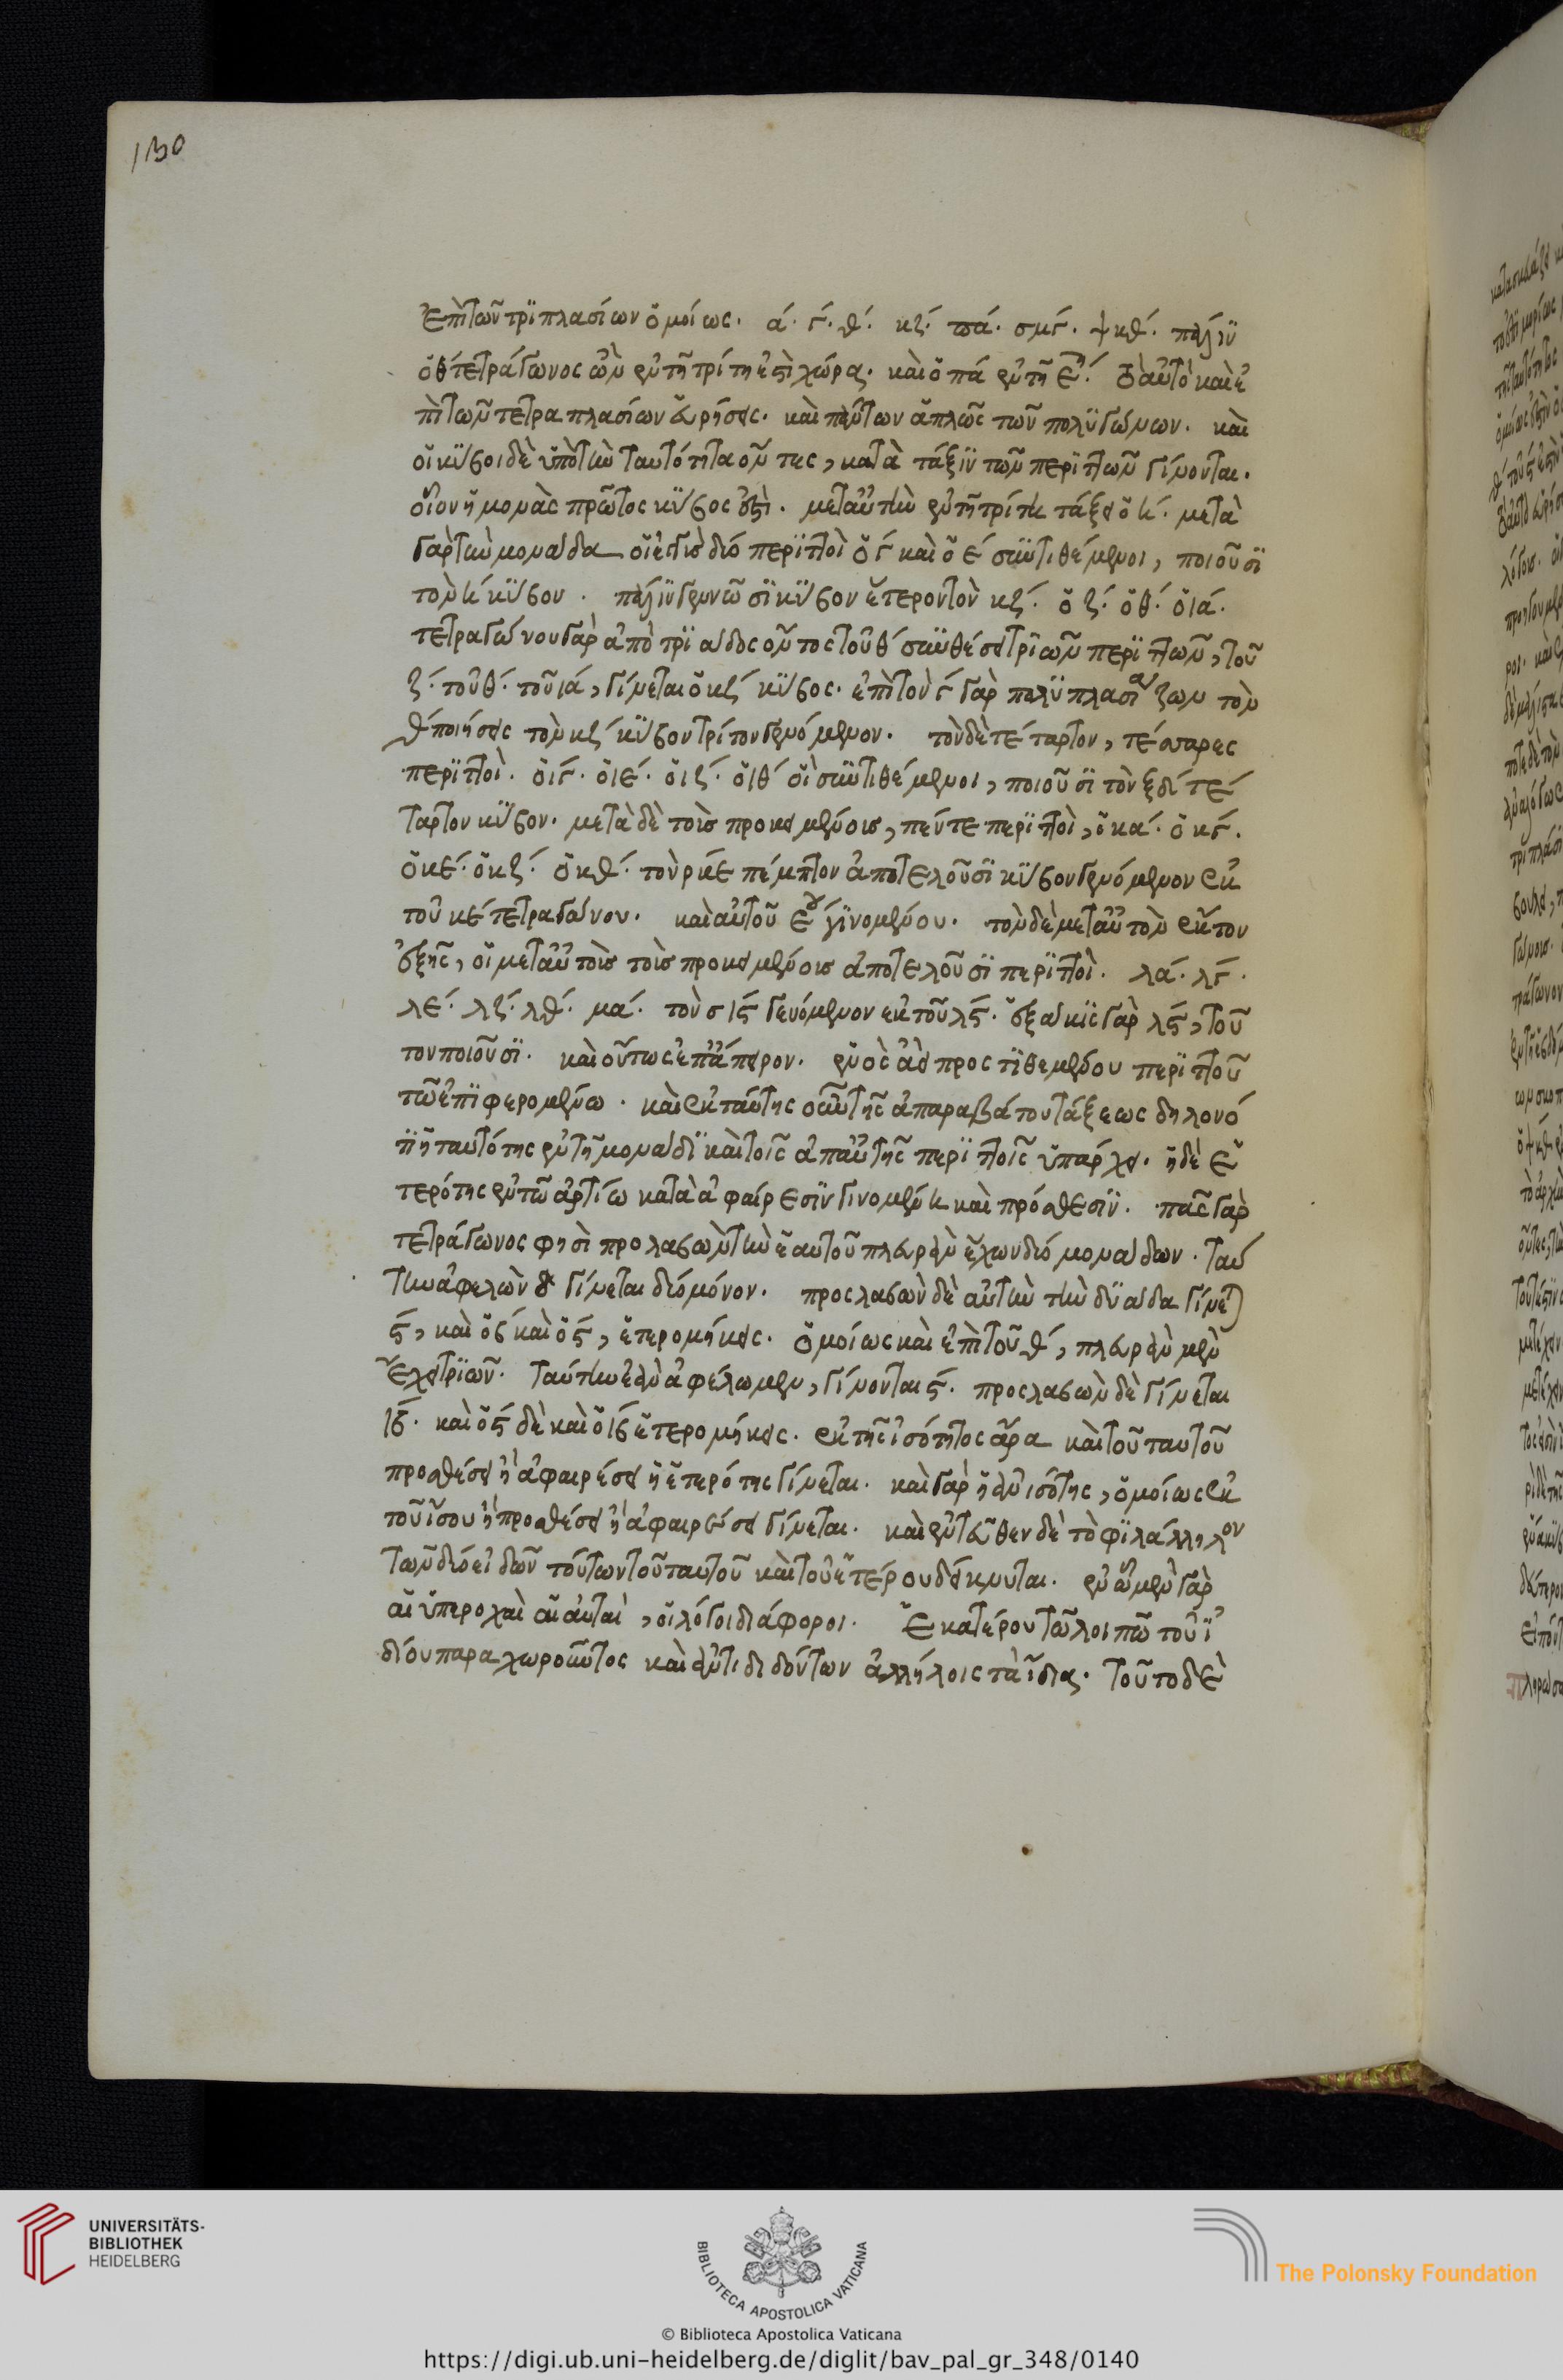 130
ἐπὶ τῶν τριπλασίων ὁμοίως. ά. γ́. θ́. κζ́. πά. σμγ́. ψκθ́. πάλιν
ὁ θ́ τετράγωνος ὢν ἐν τῆ τρίτη ἐστὶ χώρα. καὶ ὁ πά ἐν τῆ ε΄. τὸ αὐτὸ καὶ ἐ
πὶ τῶν τετραπλασίων εὑρήσεις. καὶ πάντων ἁπλῶς τῶν πολυγώνων. καὶ
οἱ κύβοι δὲ ὑπὸ τὴν ταυτότητα ὄντες, κατὰ τάξιν τῶν περιττῶν γίνονται.
οἷον ἡ μονὰς πρῶτος κύβος ἐστὶ. μετ' αὐτὴν ἐν τῆ τρίτη τάξει ὁ ή. μετὰ
γὰρ τὴν μονάδα οἱ ἐφεξῆς δύο περιττοὶ ὁ γ́ καὶ ὁ έ συντιθέμενοι, ποιοῦσι
τὸν ή κύβον. πάλιν γεννῶσι κύβον ἕτερον τὸν κζ́. ὁ ζ́. ὁ θ́. ὁ ιά.
τετραγώνου γὰρ ἀπὸ τριάδος ὄντος τοῦ θ́ συνθέσει τριῶν περιττῶν, τοῦ
ζ́. τοῦ θ́. τοῦ ιά, γίνεται ὁ κζ́ κύβος. ἐπὶ τὸν γ́ γὰρ πολυπλασιάζων τὸν
θ́ ποιήσεις τὸν κζ́ κύβον τρίτον γενόμενον. τὸν δὲ τέταρτον, τέσσαρες
περιττοὶ. ὁ ιγ́. ὁ ιέ. ὁ ιζ́. ὁ ιθ́ οἳ συντιθέμενοι, ποιοῦσι τὸν ξδ́ τέ
ταρτον κύβον. μετὰ δὲ τοῖς προκειμένοις, πέντε περιττοὶ, ὁ κά. ὁ κγ́.
ὁ κέ. ὁ κζ́. ὁ κθ́. τὸν ρκέ πέμπτον ἀποτελοῦσι κύβον γενόμενον ἐκ
τοῦ κέ τετραγώνου. καὶ αὐτοῦ γινομένου. τὸν δὲ μετ' αὐτὸν ἕκτον
ἑξῆς, οἱ μετ' αὐτοῖς τοῖς προκειμένοις ἀποτελοῦσι περιττοὶ. λά. λγ́.
λέ. λζ́. λθ́. μά. τὸν σιϛ́ γενόμενον ἐκ τοῦ λϛ́. ἑξάκις γὰρ λϛ́, τοῦ
τον ποιοῦσι. καὶ οὕτως ἐπ' ἄπειρον. ἑνὸς ἀεὶ προστιθεμένου περιττοῦ
τῶ ἐπιφερομένω. καὶ ἐκ ταύτης οὖν τῆς ἀπαραβάτου τάξεως δηλονό
τι ἡ ταυτότης ἐν τῆ μονάδι καὶ τοῖς ἀπ' αὐτῆς περιττοῖς ὑπάρχει. ἡ δὲ ἑ
τερότης ἐν τῶ ἀρτίω κατὰ ἀφαίρεσιν γινομένη καὶ πρόσθεσιν. πᾶς γὰρ
τετράγωνος φησὶ προλαβὼν τὴν ἑαυτοῦ πλευρὰν ἔχων δύο μονάδων. ταύ
την ἀφελὼν γίνεται δύο μόνον. προσλαβὼν δὲ αὐτὴν τὴν δυάδα γίνετ
ϛ́, καὶ ὁ β́ καὶ ὁ ϛ́, ἑτερομήκεις. ὁμοίως καὶ ἐπὶ τοῦ θ́, πλευρὰν μὲν
ἔχει τριῶν. ταύτην ἐὰν ἀφέλωμεν, γίνονται ϛ́. προσλαβὼν δὲ γίνεται
ιβ́. καὶ ὁ ϛ́ δὲ καὶ ὁ ιβ́ ἑτερομήκεις. ἐκ τῆς ἰσότητος ἄρα καὶ τοῦ ταυτοῦ
προσθέσει ἢ ἀφαιρέσει ἡ ἑτερότης γίνεται. καὶ γὰρ ἡ ἀνισότης, ὁμοίως ἐκ
τοῦ ἴσου ἢ προσθέσει ἢ ἀφαιρέσει γίνεται. καὶ ἐντεῦθεν δὲ τὸ φιλάλληλον
τῶν δύο εἰδῶν τούτων τοῦ ταυτοῦ καὶ τοῦ ἑτέρου δείκνυται. ἐν ὧ μὲν γὰρ
αἱ ὑπεροχαὶ αἱ αὐταὶ, οἱ λόγοι διάφοροι. ἑκατέρου τῶ λοιπῶ τοῦ ἰ
δίου παραχωροῦντος καὶ ἀντιδιδόντων ἀλλήλοις τὰ ἴδια. τοῦτο δὲ
UNIVERSITÄTS-
BIBLIOTHEK
HEIDELBERG
BIBLIOTECA APOSTOLICA VATICANA
The Polonsky Foundation
© Biblioteca Apostolica Vaticana
https://digi.ub.uni-heidelberg.de/diglit/bav_pal_gr_348/0140